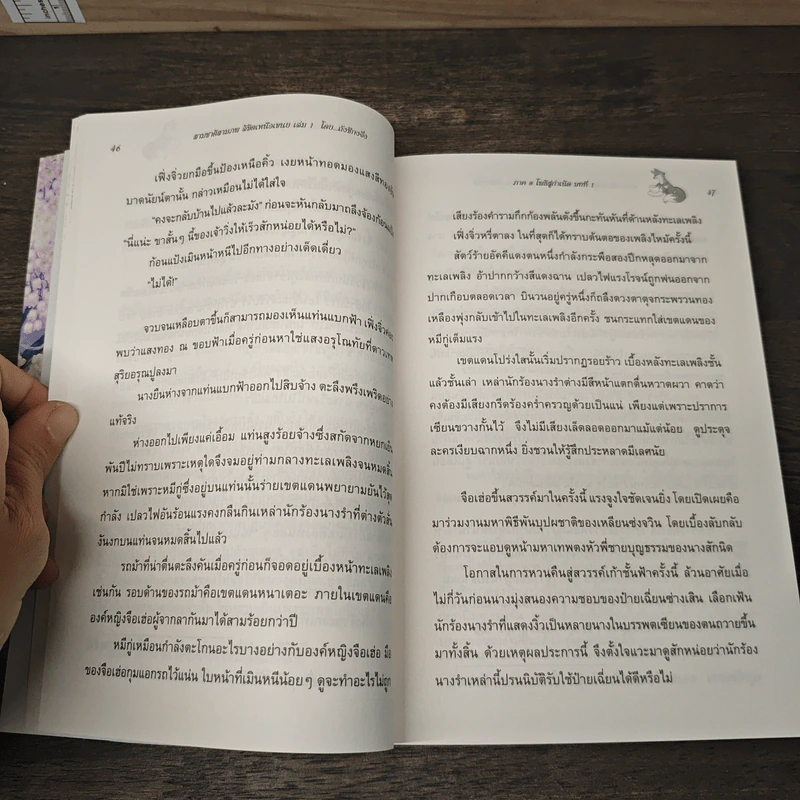 46
สามชาติสามภพ ลิขิตเหนือเขนย เล่ม 1 โดย...ถังชีกงจื่อ
เฟิ่งจิ่วยกมือขึ้นป้องเหนือคิ้ว เงยหน้าทอดมองแสงสีทอง
บาดนัยน์ตานั้น กล่าวเหมือนไม่ได้ใส่ใจ
“คงจะกลับบ้านไปแล้วละมัง” ก่อนจะหันกลับมาถลึงจ้องก้อนแป้ง
“นี่แน่ะ ขาสั้นๆ นี้ของเจ้าวิ่งให้เร็วสักหน่อยได้หรือไม่?”
ก้อนแป้งเมินหน้าหนีไปอีกทางอย่างเด็ดเดี่ยว
“ไม่ได้!”
จวบจนเหลือบตาขึ้นก็สามารถมองเห็นแท่นแบกฟ้า เฟิ่งจิ่วค่อย
พบว่าแสงทอง ณ ขอบฟ้าเมื่อครู่ก่อนหาใช่แสงอรุโณทัยที่ดาวเทพ
สุริยอรุณปูลงมา
นางยืนห่างจากแท่นแบกฟ้าออกไปสิบจ้าง ตะลึงพรึงเพริดอย่าง
แท้จริง
ห่างออกไปเพียงแค่เอื้อม แท่นสูงร้อยจ้างซึ่งสกัดจากหยกเย็น
พันปีไม่ทราบเพราะเหตุใดจึงจมอยู่ท่ามกลางทะเลเพลิงจนหมดสิ้น
หากมิใช่เพราะหมีกู่ซึ่งอยู่บนแท่นนั้นร่ายเขตแดนพยายามยันไว้สุด
กำลัง เปลวไฟอันร้อนแรงคงกลืนกินเหล่านักร้องนางรำที่ต่างตัวสั่น
งันงกบนแท่นจนหมดสิ้นไปแล้ว
รถม้าที่น่าตื่นตะลึงคันเมื่อครู่ก่อนก็จอดอยู่เบื้องหน้าทะเลเพลิง
เช่นกัน รอบด้านของรถม้าคือเขตแดนหนาเตอะ ภายในเขตแดนคือ
องค์หญิงจือเฮ่อผู้จากลากันมาได้สามร้อยกว่าปี
หมีกู่เหมือนกำลังตะโกนอะไรบางอย่างกับองค์หญิงจือเฮ่อ มือ
ของจือเฮ่อกุมแอกรถไว้แน่น ใบหน้าที่เมินหนีน้อยๆ ดูจะทำอะไรไม่ถูก
ภาค ๑ โพธิสู่กำเนิด บทที่ 1
47
เสียงร้องคำรามกึกก้องพลันดังขึ้นกะทันหันที่ด้านหลังทะเลเพลิง
เฟิ่งจิ่วหรี่ตาลง ในที่สุดก็ได้ทราบต้นตอของเพลิงไหม้ครั้งนี้
สัตว์ร้ายอัคคีแดงตนหนึ่งกำลังกระพือสองปีกหลุดออกมาจาก
ทะเลเพลิง อ้าปากกว้างสีแดงฉาน เปลวไฟแรงโรจน์ถูกพ่นออกจาก
ปากเกือบตลอดเวลา บินวนอยู่ครู่หนึ่งก็ถลึงดวงตาดุจกระพรวนทอง
เหลืองพุ่งกลับเข้าไปในทะเลเพลิงอีกครั้ง ชนกระแทกใส่เขตแดนของ
หมีกู่เต็มแรง
เขตแดนโปร่งใสนั้นเริ่มปรากฏรอยร้าว เบื้องหลังทะเลเพลิงชั้น
แล้วชั้นเล่า เหล่านักร้องนางรำต่างมีสีหน้าแตกตื่นหวาดผวา คาดว่า
คงต้องมีเสียงกรีดร้องคร่ำครวญด้วยเป็นแน่ เพียงแต่เพราะปราการ
เซียนขวางกั้นไว้ จึงไม่มีเสียงเล็ดลอดออกมาแม้แต่น้อย ดูประดุจ
ละครเงียบฉากหนึ่ง ยิ่งชวนให้รู้สึกประหลาดมีเลศนัย
จือเฮ่อขึ้นสวรรค์มาในครั้งนี้ แรงจูงใจชัดเจนยิ่ง โดยเปิดเผยคือ
มาร่วมงานมหาพิธีพันบุปผชาติของเหลียนซ่งจวิน โดยเบื้องลับกลับ
ต้องการจะแอบดูหน้ามหาเทพตงหัวพี่ชายบุญธรรมของนางสักนิด
โอกาสในการหวนคืนสู่สวรรค์เก้าชั้นฟ้าครั้งนี้ ล้วนอาศัยเมื่อ
ไม่กี่วันก่อนนางมุ่งสนองความชอบของป้ายเฉี่ยนซ่างเสิน เลือกเฟ้น
นักร้องนางรำที่แสดงงิ้วเป็นหลายนางในบรรพตเซียนของตนถวายขึ้น
มาทั้งสิ้น ด้วยเหตุผลประการนี้ จึงตั้งใจแวะมาดูสักหน่อยว่านักร้อง
นางรำเหล่านี้ปรนนิบัติรับใช้ป้ายเฉี่ยนได้ดีหรือไม่